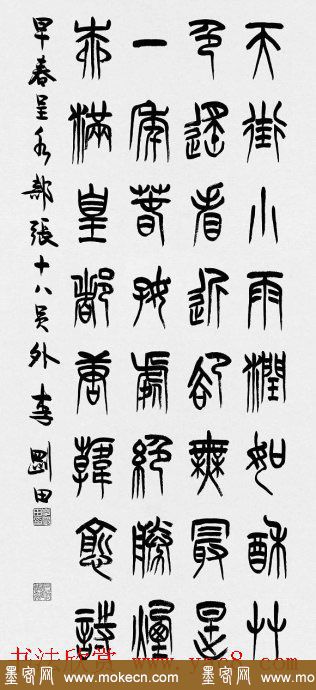 天街小雨潤如酥艸
色遙看近卻無最是
一年春好處絕勝煙
柳滿皇都唐韓愈詩
早春呈水部張十八員外 李剛田
书法欣赏
墨客网 www.mokecn.com 墨客网